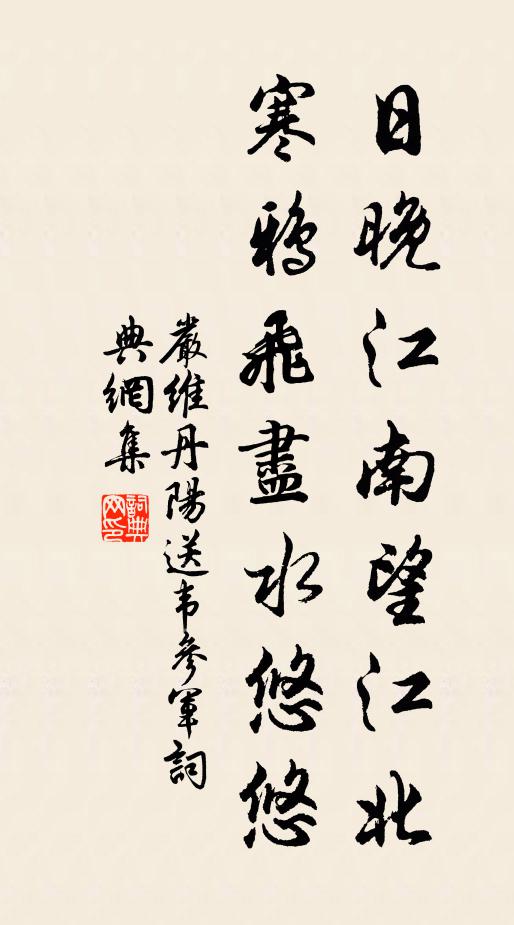 日晚江南望江北
寒鴉飛盡水悠悠
嚴維丹陽送韦參軍詞
典網集
詞典
网印